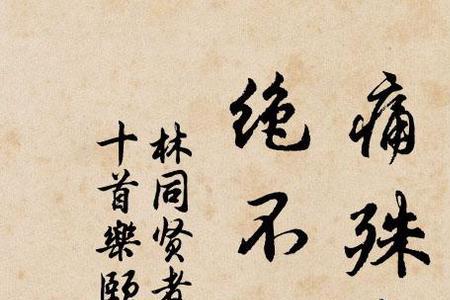 痛殊
绝不
林同贤者
十首樂頤